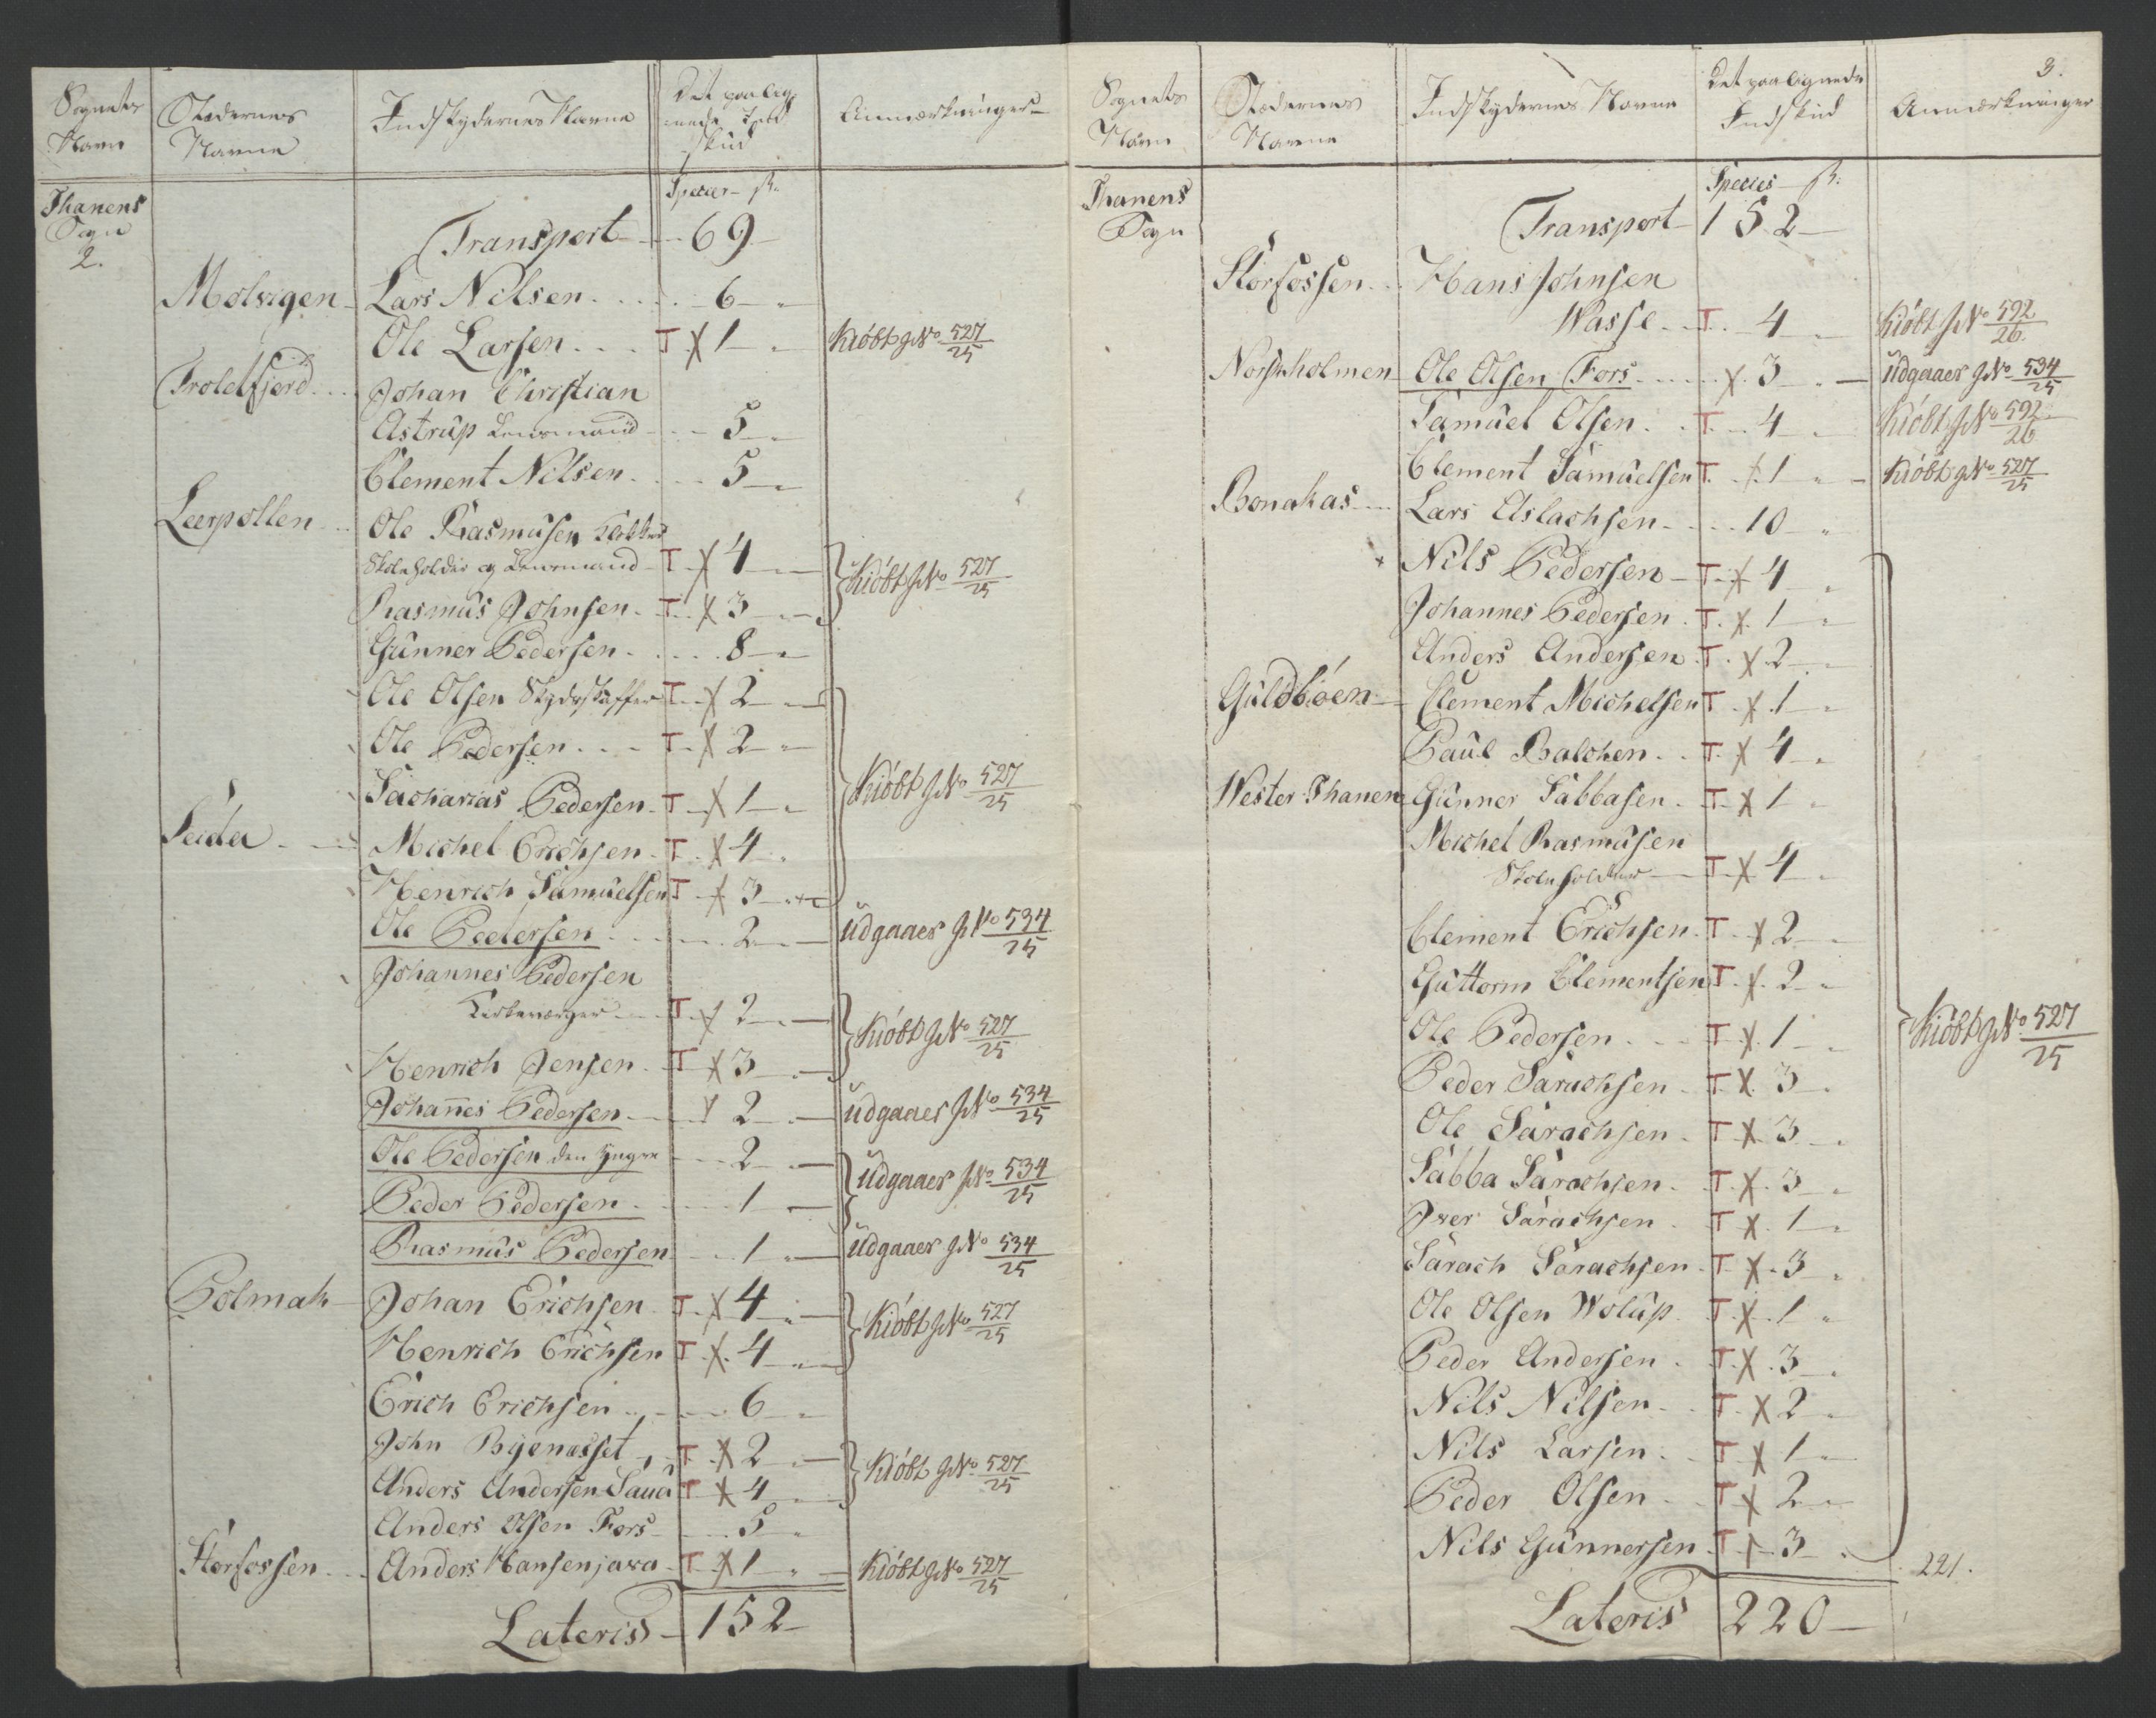 Sognets Navn | Stædernes Navne | Indskydernes Navne | Det paalignede Indskud | Anmærkninger
Thanens Sogn 2. | Species – ß.
Transport – 69 –
Molvigen – Lars Nilsen . . . . 6 – „
Ole Larsen . . . T X 1 „ Kiöbt J No 527/25
Troldfjord . . . Johan Christian
Astrup Lensmand – 5 – „
Clement Nilsen . . . 5 – „
Leerpollen . . . Ole Rasmusen Klokker
Skoleholder og Lensmand – T X 4 –
Rasmus Johnsen . T X 3 – „ } Kiöbt J No 527/25
Gunner Pedersen . . . . . 8 – „
Ole Olsen Skydsskaffer T X 2 – „
Ole Pedersen . . . T X 2 – „
Sacharias Pedersen – T X 1 – „ } Kiöbt J No 527/25
Seida – Michel Erichsen . T X 4 „
Henrich Samuelsen T X 3 – „
Ole Pedersen . . . . 2 – „ – Udgaaer J No 534/25
Johannes Pedersen
Kirkeværger . . . T X 2 – „ –
Henrich Jensen . T X 3 – „ – } Kiöbt J No 527/25
Johañes Pedersen – X 2 – „ – Udgaaer J No 534/25
Ole Pedersen den Yngre – 2 – „ –
Peder Pedersen . . . . 1 – } Udgaaer J No 534/25
Rasmus Pedersen – 1 „ – Udgaaer J No 534/25
Polmak – Johan Erichsen . T X 4 „ –
Henrich Erichsen T X 4 „ – } Kiöbt J No 527/25
Erich Erichsen . . . 6 – „
John Byenasset – T X 2 „ –
Anders Andersen Saua T X 4 } Kiöbt J No 527/25
Anders Olsen Fors – . . 5 „
Storfossen . . . Anders Hansen java – T X 1 „ – Kiöbt J No 527/25
Lateris – 152 –
3.
Sognets Navn | Stædernes Navne | Indskydernes Navne | Det paalignede Indskud | Anmærkninger
Thanens Sogn | Species – ß:
Transport – 152 –
Storfossen . . . Hans Johnsen
Wasse . . T . 4 „ Kiöbt J No 592/26.
Norskholmen – Ole Olsen Fors . . . X . 3 „ – Udgaaer J No 534/25
Samuel Olsen . . T . . 4 – „ Kiöbt J No 592/26
Clement Samuelsen T . X . 1 „ – Kiöbt J No 527/25
Bonakas – Lars Elslachsen – . . 10 „
Nils Pedersen – T . X 4 „
Johannes Pedersen . T . X . 1 – „
Anders Andersen . T . X 2 – „
Guldboen – Clement Michelsen T . X . 1 „
Paul Balchen . . T . X 4 – „
Wester Thanen – Gunner Sabbasen . T X 1 „
Michel Rasmusen
Skoleholder – T X 4 – „
Clement Erichsen . T . X 2 – „
Guttorm Clementsen T . X . 2 – „
Ole Pedersen . . . T X . 1 – „ } Kiöbt J No 527/25
Peder Sarachsen . T X . 3 – „
Ole Sarachsen . T X . 3 – „
Sabba Sarachsen . T . X . 3 – „
Iver Sarachsen . T X . 1 – „
Sarach Sarachsen . T X . 3 „
Ole Olsen Wolup . T . X . 1 „
Peder Andersen . T . X . 3 – „
Nils Nilsen . . T . X 2 – „
Nils Larsen . . T X 1 – „
Peder Olsen . . T X 2 – „
Nils Gunnersen . T . X . 3 – „
221.
Lateris 220 –